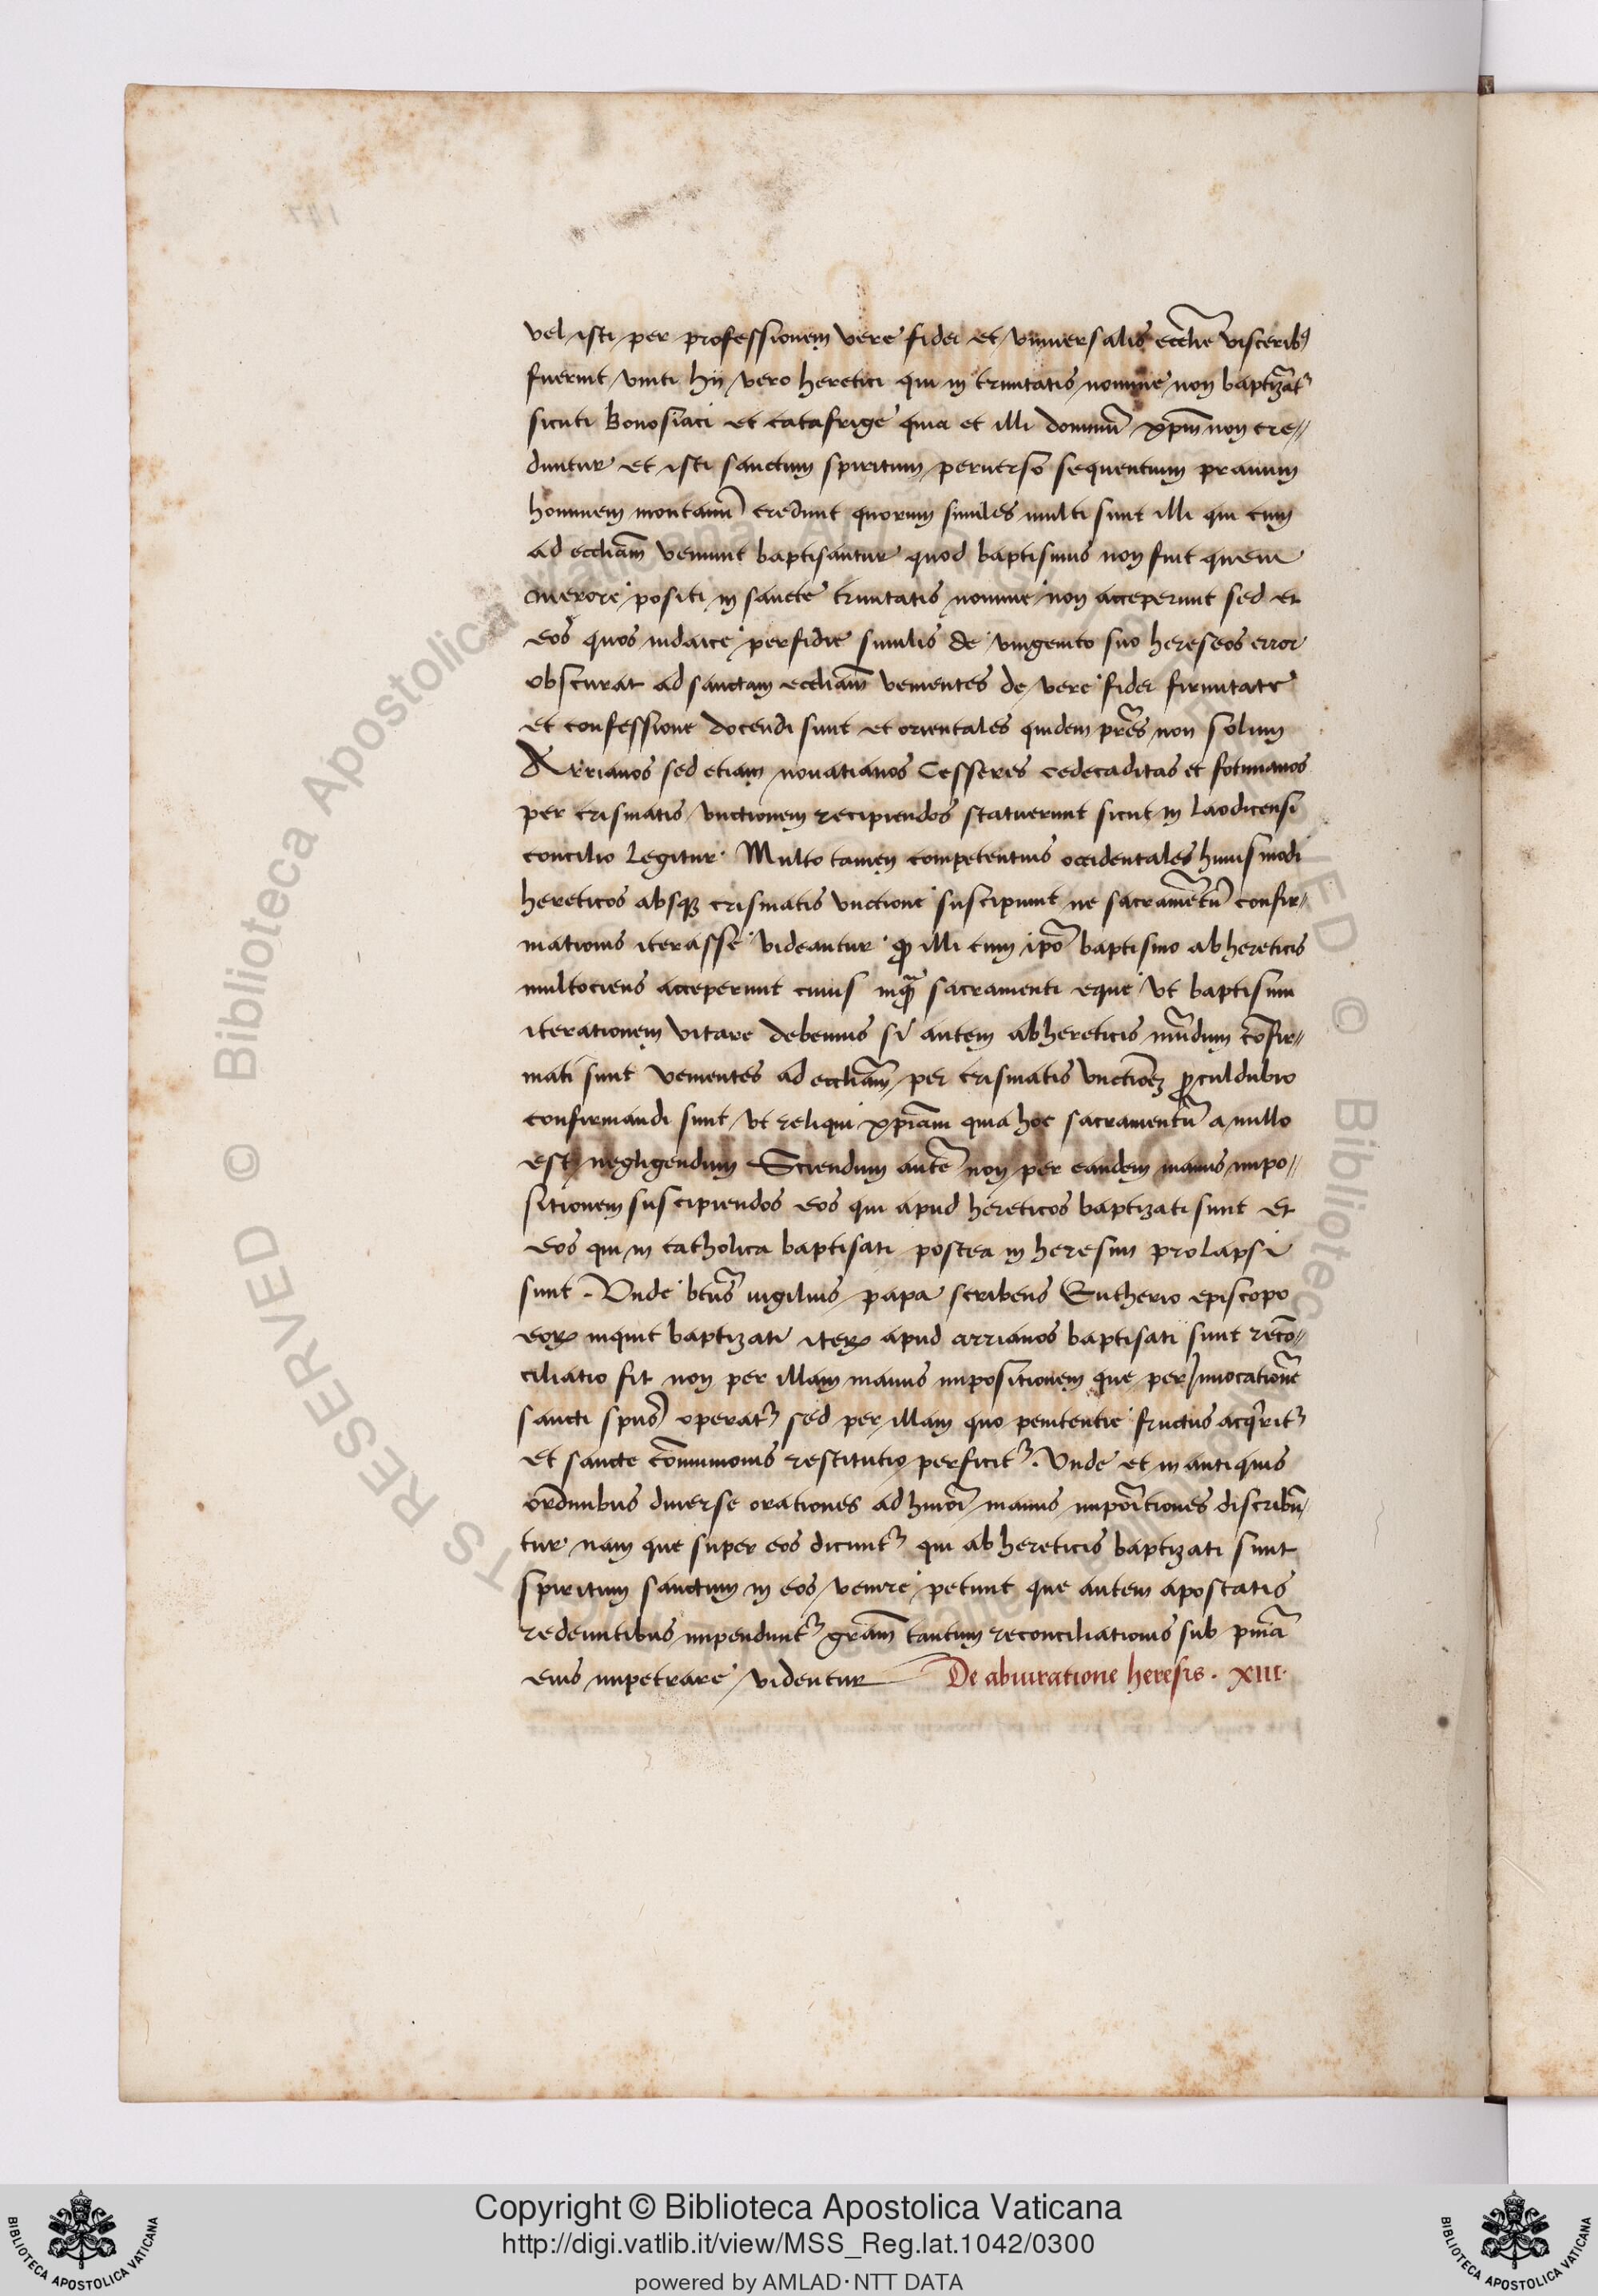 vel isti per professionem vere fidei et vniuersalis eccl̄ie visceribꝰ
fuerint vniti hij vero heretici qui in trinitatis nomine non baptizāt᷑
sicuti bonosiaci et catafrige quia et illi dominū xp̄m non cre//
duntur et isti sanctum spiritum peruerso sequentium prauum
hominem montanū credunt quorum similes multi sunt illi qui cum
ad eccliam̄ veniunt baptisantur quod baptismus non fuit quem
in erore positi in sancte trinitatis nomine non acceperunt sed et
eos quos iudaice perfidie similis de vnigenito suo hereseos error
obscurat ad sanctam eccliam̄ venientes de vere fidei firmitate
et confessione docendi sunt et orientales quidem pr̄es non solum
Arrianos sed etiam nouatianos Cesseres cedecaditas et fotinianos
per crismatis vnctionem recipiendos statuerunt sicut in laodicensi
concilio legitur. Multo tamen competentius occidentales huiusmodi
hereticos absqꝫ crismatis vnctione suscipiunt ne sacramētū confir//
mationis iterasse videantur ꝙ illi cum ip̄o baptismo ab hereticis
multociens acceperunt cuius inquā sacramenti eque vt baptismi
iterationem vitare debemus si autem ab hereticis nundum cōfir//
mati sunt venientes ad eccliam̄ per crismatis vnctionē ꝓculdubio
confirmandi sunt vt reliqui xp̄iani quia hoc sacramentū a nullo
est negligendum Sciendum autē non per eandem manus impo//
sitionem suscipiendos eos qui apud hereticos baptizati sunt et
eos qui in catholica baptisati postea in heresim prolapsi
sunt. Vnde bt̄us uigilius papa scribens Eutherio episcopo
eoꝝ inquit baptizati iteꝝ apud arrianos baptisati sunt recō//
ciliatio fit non per illam manus impositionem que per Inuocationē
sancti sp̄us operat᷑ sed per illam quo penitentie fructus acq̄rit᷑
et sancte cōmunionis restitutio perficit᷑. Vnde et in antiquis
ordinibus diuerse orationes ad hmōi manus impōitiones discribū/
tur nam que super eos dicunt᷑ qui ab hereticis baptizati sunt
spiritum sanctum in eos venire petunt que autem apostatis
redeuntibus impendunt᷑ grām tantum reconciliationis sub pnīa
eius impetrare videntur De abiuratione heresis. XIII.
Copyright © Biblioteca Apostolica Vaticana
http://digi.vatlib.it/view/MSS_Reg.lat.1042/0300
powered by AMLAD·NTT DATA
BIBLIOTECA APOSTOLICA VATICANA
BIBLIOTECA APOSTOLICA VATICANA